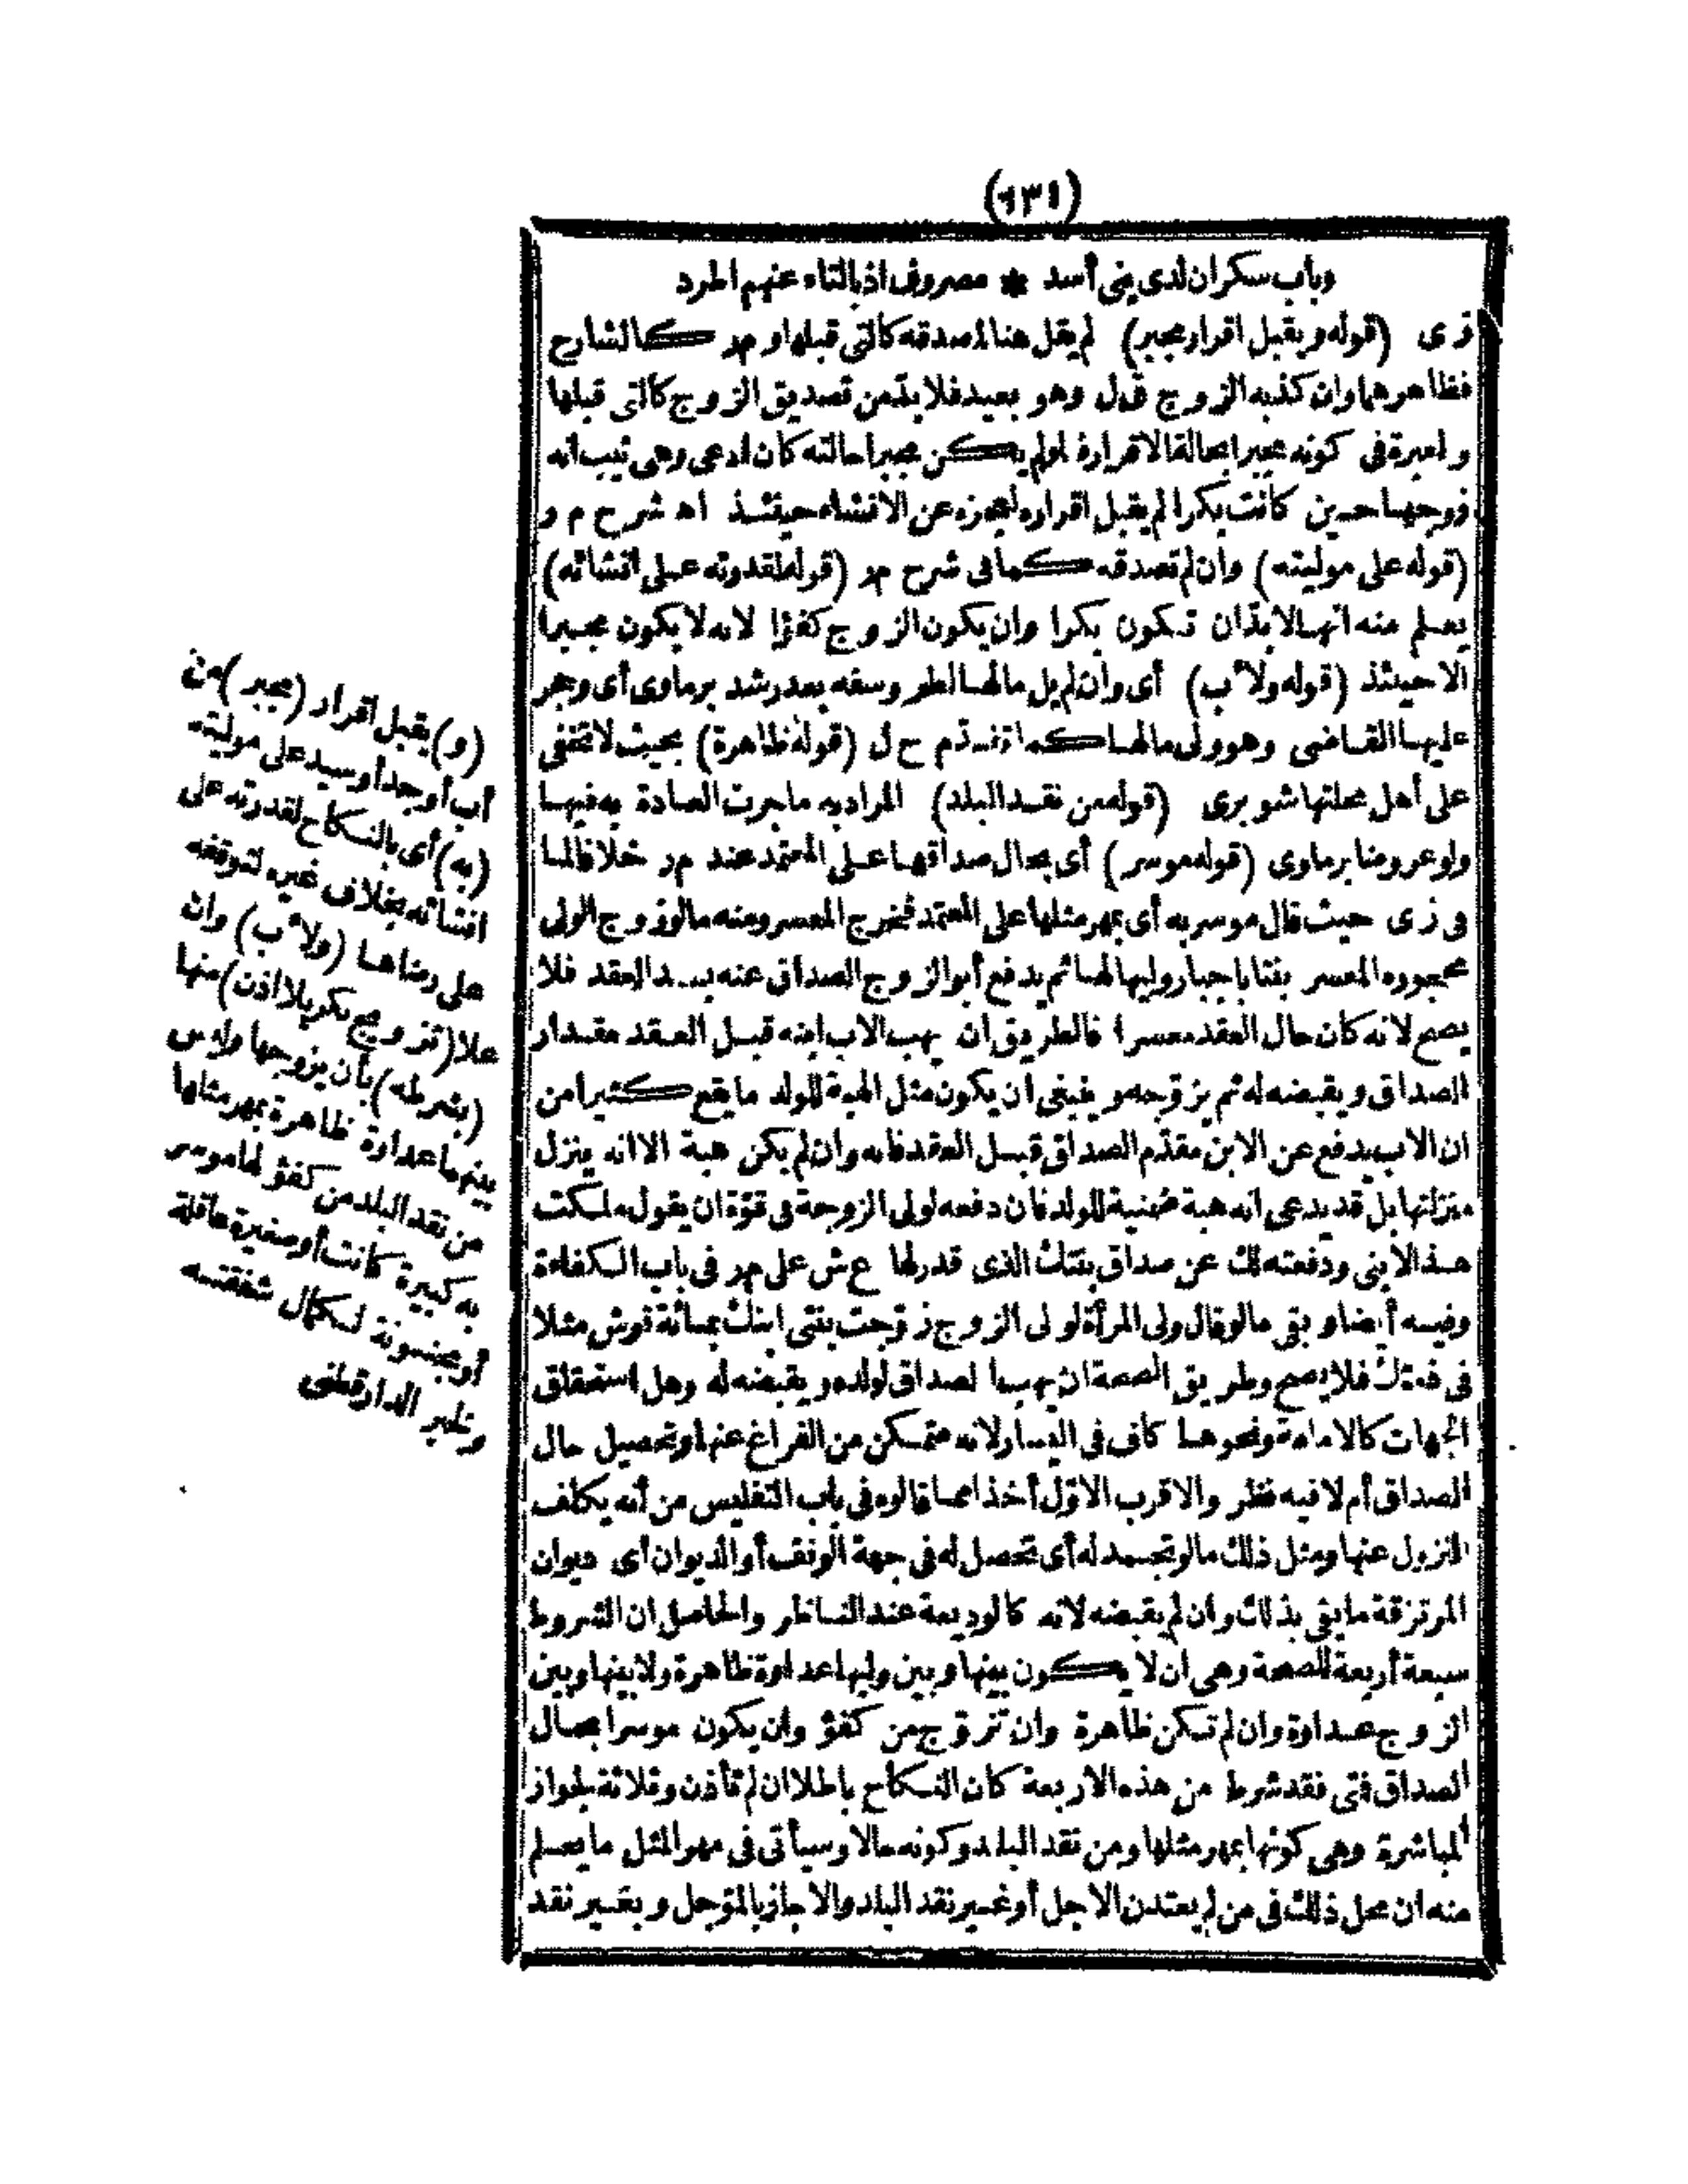 (٦٣١)
وباب سكران لدى بنى أسد * مصروف اذ بالتاء عنهم اطرد
زى (قوله ويقبل اقرار مجبر) لم يقل هنا لمصدقه كالتى قبلها و مر كالشارح
فظاهرهما وان كذبه الزوج قال وهو بعيد فلا بد من تصديق الزوج كالتى قبلها
والعبرة فى كونه مجبرا بحالة الاقرار فلو لم يكن مجبرا حالته كان ادعى وهى ثيب انه
زوجها حين كانت بكرا لم يقبل اقراره لعجزه عن الانشاء حينئذ اه شرح م ر
(قوله على موليته) وان لم تصدقه كما فى شرح مر (قوله لقدرته على انشائه)
يعلم منه انها لا بد أن تكون بكرا وان يكون الزوج كفؤا لانه لا يكون مجبرا
الا حينئذ (قوله ولأب) أى وان لم يل مالها لطرو سفه بعد رشد برماوى أى وحجر
عليها القاضى وهو ولى مالها كما تقدم ح ل (قوله ظاهرة) بحيث لا تخفى
على أهل محلتها شوبرى (قوله من نقد البلد) المراد به ما جرت العادة به فيها
ولو عروضا برماوى (قوله موسر) أى بحال صداقها على المعتمد عند مر خلافا لما
فى زى حيث قال موسر به أى بمهر مثلها على المعتمد فخرج المعسر ومنه ما لو زوج الولى
محجوره المعسر بنتا باجبار وليها لها ثم يدفع أبو الزوج الصداق عنه بعد العقد فلا
يصح لانه كان حال العقد معسرا فالطريق ان يهب الاب ابنه قبل العقد مقدار
الصداق ويقبضه له ثم يزوجه وينبغى ان يكون مثل الهبة للولد ما يقع كثيرا من
ان الاب يدفع عن الابن مقدم الصداق قبل العقد فانه وان لم يكن هبة الا انه ينزل
منزلتها بل قد يدعى انه هبة ضمنية للولد فان دفعه لولى الزوجة فى قوة ان يقول ملكت
هذا لابنى ودفعته لك عن صداق بنتك الذى قدر لها ع ش على مر فى باب الكفاءة
وفيه أيضا وبقى ما لو قال ولى المرأة لولى الزوج زوجت بنتى ابنك بمائة قرش مثلا
فى ذمتك فلا يصح وطريق الصحة ان يهب الصداق لولده ويقبضه له وهل استحقاق
الجهات كالامامة ونحوها كاف فى اليسار لانه متمكن من الفراغ عنها وتحصيل حال
الصداق أم لا فيه نظر والاقرب الاول أخذا مما قالوه فى باب التفليس من أنه يكلف
النزول عنها ومثل ذلك ما لو تجمد له أى تحصل له فى جهة الوقف أو الديوان أى ديوان
المرتزقة ما يفى بذلك وان لم يقبضه لانه كالوديعة عند الناظر والحاصل ان الشروط
سبعة أربعة للصحة وهى ان لا يكون بينها وبين وليها عداوة ظاهرة ولا بينها وبين
الزوج عداوة وان لم تكن ظاهرة وان تزوج من كفؤ وان يكون موسرا بحال
الصداق فتى فقد شرط من هذه الاربعة كان النكاح باطلا ان لم تأذن وثلاثة لجواز
المباشرة وهى كونها بمهر مثلها ومن نقد البلد وكونه حالا وسيأتى فى مهر المثل ما يعلم
منه ان محل ذلك فى من لم يعتدن الاجل أو غير نقد البلد والا جاز بالمؤجل وبغير نقد
(و) يقبل اقرار (مجبر) من
أب أو جد أو سيد على موليته
(به) أى بالنكاح لقدرته على
انشائه بخلاف غيره لتوقفه
على رضاها (ولأب) وان
علا (تزويج بكر بلا اذن) منها
(بشرطه) بأن يزوجها وليس
بينهما عداوة ظاهرة بمهر مثلها
من نقد البلد من كفؤ لها موسر
به كبيرة كانت أو صغيرة عاقلة
أو مجنونة لكمال شفقته
ولخبر الدارقطنى